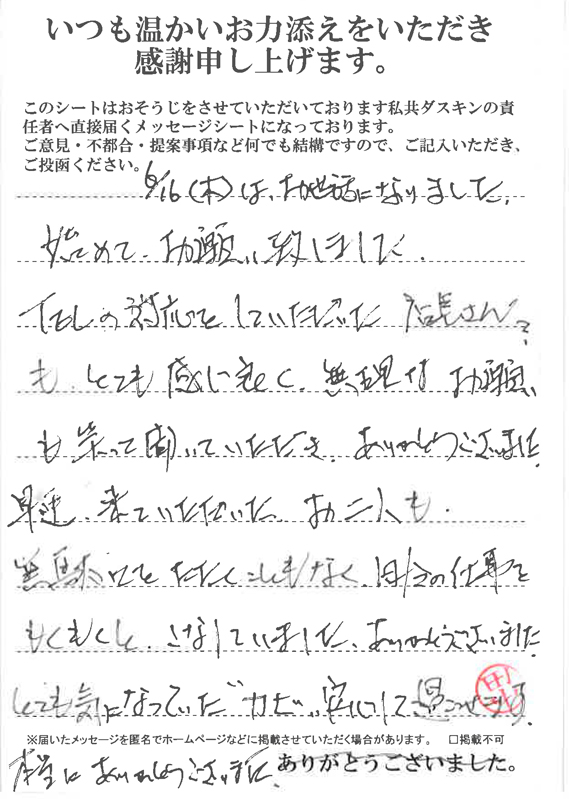 いつも温かいお力添えをいただき
感謝申し上げます。
このシートはおそうじをさせていただいております私共ダスキンの責
任者へ直接届くメッセージシートになっております。
ご意見・不都合・提案事項など何でも結構ですので、ご記入いただき、
ご投函ください。
6/16(木)は、お世話になりました。
始めて、お願い致しまして、
TELの対応をしていただいた 店長さん?
も、とても感じ良く、無理なお願い
も笑って聞いていただき、ありがとうございました。
早速、来ていただいた、お二人も、
無駄口をたたくこともなく、自分の仕事を
もくもくと、こなしていました、ありがとうございました
とても気になっていた"カビ"、安心して過ごせます。
※届いたメッセージを匿名でホームページなどに掲載させていただく場合があります。 □掲載不可
本当にありがとうございました。
ありがとうございました。